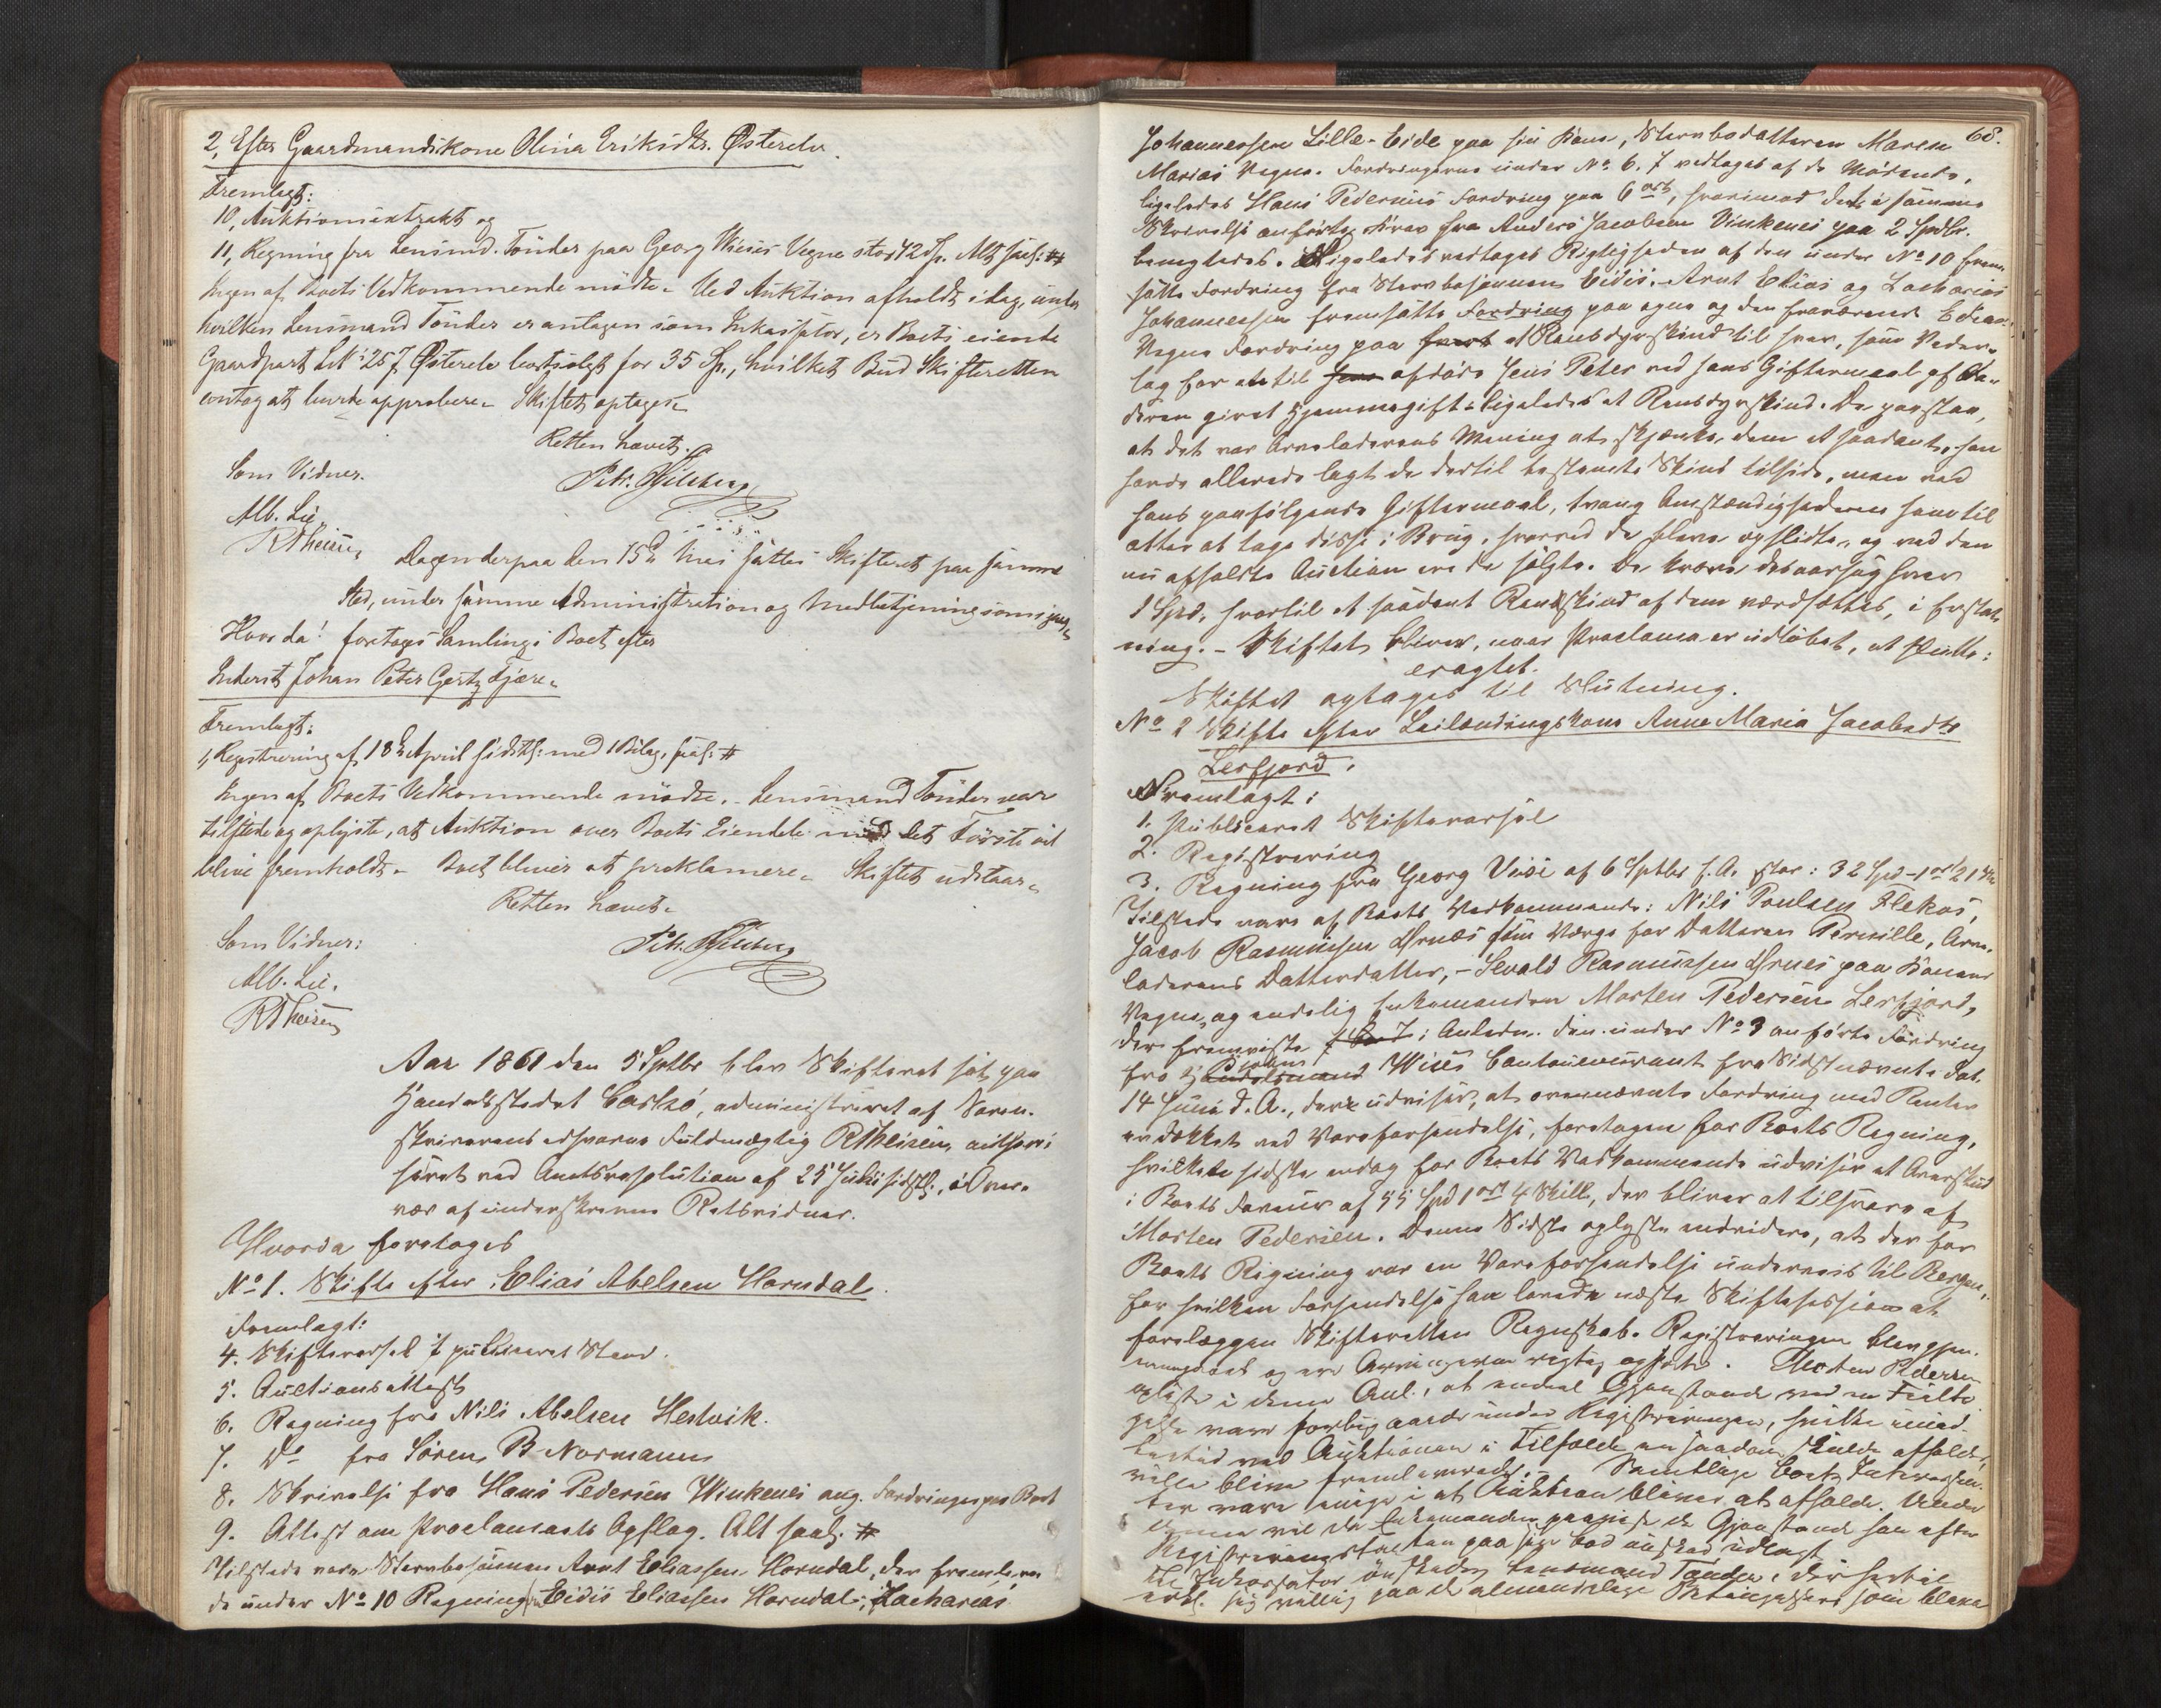 2, Efter Gaardmandskone Olina Eriksdtr. Østerelv.
Fremlagt:
10, Auktionsextrakt og
11, Regning fra Lensmd. Tönder paa Georg Wisøs Vegne stor 42 Sp. Alt saal: #
Ingen af Boets Vedkommende mödte. Ved Auktion afholdt idag, under
hvilken Lensmand Tönder er antagen som Inkassator, er Boets eiende
Gaardpart L 257 Østerelv bortsolgt for 35 Sp., hvilket Bud Skifteretten
antog at burde approbere. Skiftet optages.
Retten hævet.
Som Vidner.
Alb. Lie.
RTheisen
Dagen derpaa den 15de Mai sattes Skifteret paa samme
Sted, under samme Administration og Medbetjening som igaar
Hvor da! foretoges Samling i Boet efter
Inderst Johan Peter Gertz Fjære.
Fremlagt:
1, Registrering af 18de April sidstl: med 1 Bilag, saal: #
Ingen af Boets Vedkommende mödte. Lensmand Tönder var
tilstede og oplyste, at Auktion over Boets Eiendele med det Förste vil
blive fremholdt. Boet bliver at proklamere. Skiftet udstaar.
Retten hævet.
Som Vidner:
Alb. Lie.
RTheisen
Aar 1861 den 5 Sptbr blev Skifteret sat paa
Handelsstedet Carlsö, administreret af Soren-
skriverens edsvorne Fuldmægtig RTheisen, autori-
seret ved Amtsresolution af 25 Juli sidstl., i Over-
vær af underskrevne Retsvidner.
Hvorda foretoges
No 1. Skifte efter Elias Abelsen Horndal.
Fremlagt:
4. Skiftevarsel i publiceret Stand.
5. Auctionsattest
6. Regning fra Nils Abelsen Hestvik.
7. Do fra Sören B Normann
8. Skrivelse fra Hans Pedersen Winkenes ang. Fordringer paa Boet
9. Attest om Proclamaets Opslag. Alt saal. #
Tilstede vare Stervbosönnen Arnt Eliassen Horndal, der fremlev
de under No 10 Regning fra Eidis Eliassen Horndal; Zacharias
68.
Johannessen Lille-Eide paa sin Kone, Stervbodatteren Maren
Marias Vegne. Fordringerne under No 6. 7 vedtoges af de Mödende,
ligeledes Hans Pedersens Fordring paa 6 ort, hvorimod det i samme
Skrivelse anförte Krav fra Anders Jacobsen Vinkenes paa 2 Spdlr.
benegtedes. Ligeledes vedtoges Rigtigheden af den under No 10 frem
satte Fordring fra Stervbosönnen Eidis. Arnt Elias og Zacharias
Johannessen fremsatte Fordring paa egne og den fraværende Edias
Vegne Fordring paa 1 Rensdyrskind til hver, som Veder-
lag for et til afdöde Jens Peter ved hans Giftermaal af Fa-
deren givet Hjemmegift: ligeledes et Rensdyrskind. De paastaa,
at det var Arveladerens Mening at skjenke dem et saadant, han
havde allerede lagt de dertil bestemte Skind tilside, men ved
hans paafölgende Giftermaal, tvang Omstændighederne ham til
atter at tage disse i Brug, hvorved de bleve opslidte, og ved den
nu afholdte Auction ere de solgte. De kræve desaarsag hver
1 Spd, hvortil et saadant Renskind af dem værdsættes, i Erstat-
ning. - Skiftet bliver, naar Proclama er udlöbet, at slutte:
eragtet.
Skiftet optages til Slutning.
No 2 Skifte efter Leilændingskone Anne Maria Jacobsdtr
Lerfjord.
Fremlagt:
1. Publiceret Skiftevarsel
2. Registrering
3. Regning fra Georg Visö af 6 Sptbr f. A. stor: 32 Spd - 1 ort 21 sk
Tilstede vare af Boets Vedkommende: Nils Poulsen Flekøs,
Jacob Rasmussen Ørnes som Værge for Datteren Pernille, Arve-
laderens Datterdatter, - Sevald Rasmussen Ørnes paa Konens
Vegne, og endelig Enkemanden Morten Pedersen Lerfjord,
der fremviste i Anledn. den under No 3 anförte Fordring
fra Wisøs Contoucourant fra Sidstnævnte dat.
14 Juni d. A., der udviser, at ovennævnte Fordring med Renter
er dækket ved Vareforsendelse, foretagen for Boets Regning,
hvilken sidste endog for Boets Vedkommende udviser et Overskud
i Boets Faveur af 55 Spd 1 ort 4 Skill, der bliver at tilsvare af
Morten Pedersen. Denne Sidste oplyste endvidere, at der for
Boets Regning var en Vareforsendelse underveis til Bergen,
for hvilken Forsendelse han lovede næste Skiftesession at
forelægge Skifteretten Regnskab. Registreringen blev gjen-
nemgaaet og ere Arvingerne rigtig opförte. Morten Pedersen
oplyste i denne Anl., at endeel Gjenstande ved en Feilta
gelse vare forbigaaede under Registreringen, hvilke imid-
lertid ved Auktionen i Tilfælde en saadan skulde afholdes,
ville blive fremleverede. - Samtlige Boets Interessen-
ter vare enige i at Auktion bliver at afholde. Under
denne vil da Enkemanden paavise de Gjenstande han efter
Registreringsforretn paa sin Lod önsked udlagt
Til Inkassator önskedes Lensmand Tönder, der hertil
erkl. sig villig paa de almindelige Betingelser som bleve